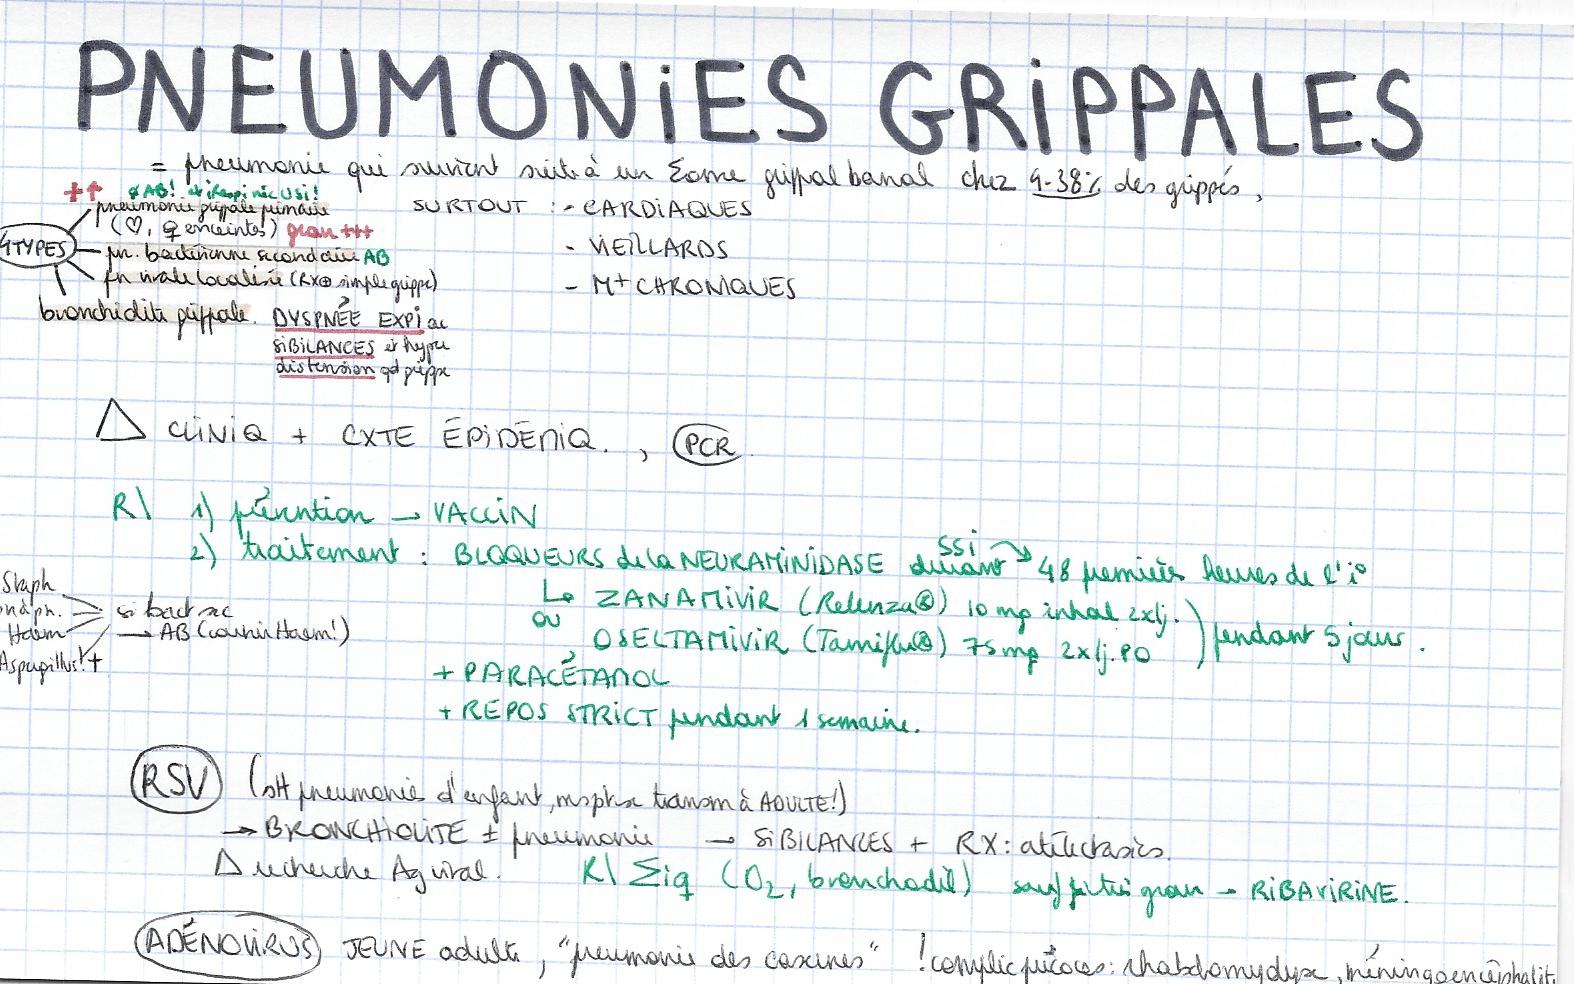 PNEUMONIES GRIPPALES
= pneumonie qui survient suite à un Σome grippal banal chez 9-38% des grippés,
++ AB!
pneumonie grippale primaire
(♡, ♀ enceintes) grav +++
4TYPES
pn. bactérienne secondaire AB
pn virale localisée (RX⊕ simple grippe)
bronchiolite grippale. DYSPNÉE EXPI ac
SIBILANCES et hyper
distension qd grippe
SURTOUT : - CARDIAQUES
- VIEILLARDS
- M+ CHRONIQUES
△ CLINIQ + CXTE ÉPIDÉMIQ. , PCR
R\ 1) prévention → VACCIN
2) traitement : BLOQUEURS de la NEURAMINIDASE durant SSI 48 premières heures de l'i°
↳ ZANAMIVIR (Relenza®) 10 mg inhal 2x/j.
ou OSELTAMIVIR (Tamiflu®) 75 mg 2x/j. PO
pendant 5 jours.
+ PARACÉTAMOL
+ REPOS STRICT pendant 1 semaine.
Staph
Haem
Aspergillus!+
si bact sec
→ AB (couvrir Haem!)
RSV (pneumonies d'enfant, transm à ADULTE!)
→ BRONCHIOLITE ± pneumonie → SIBILANCES + RX: atélectasies.
△ recherche Ag viral. R\ Σiq (O2, bronchodil) sauf grav → RIBAVIRINE.
ADÉNOVIRUS JEUNE adulte, "pneumonie des casernes" ! complic précoces: rhabdomyolyse, méningoencéphalit